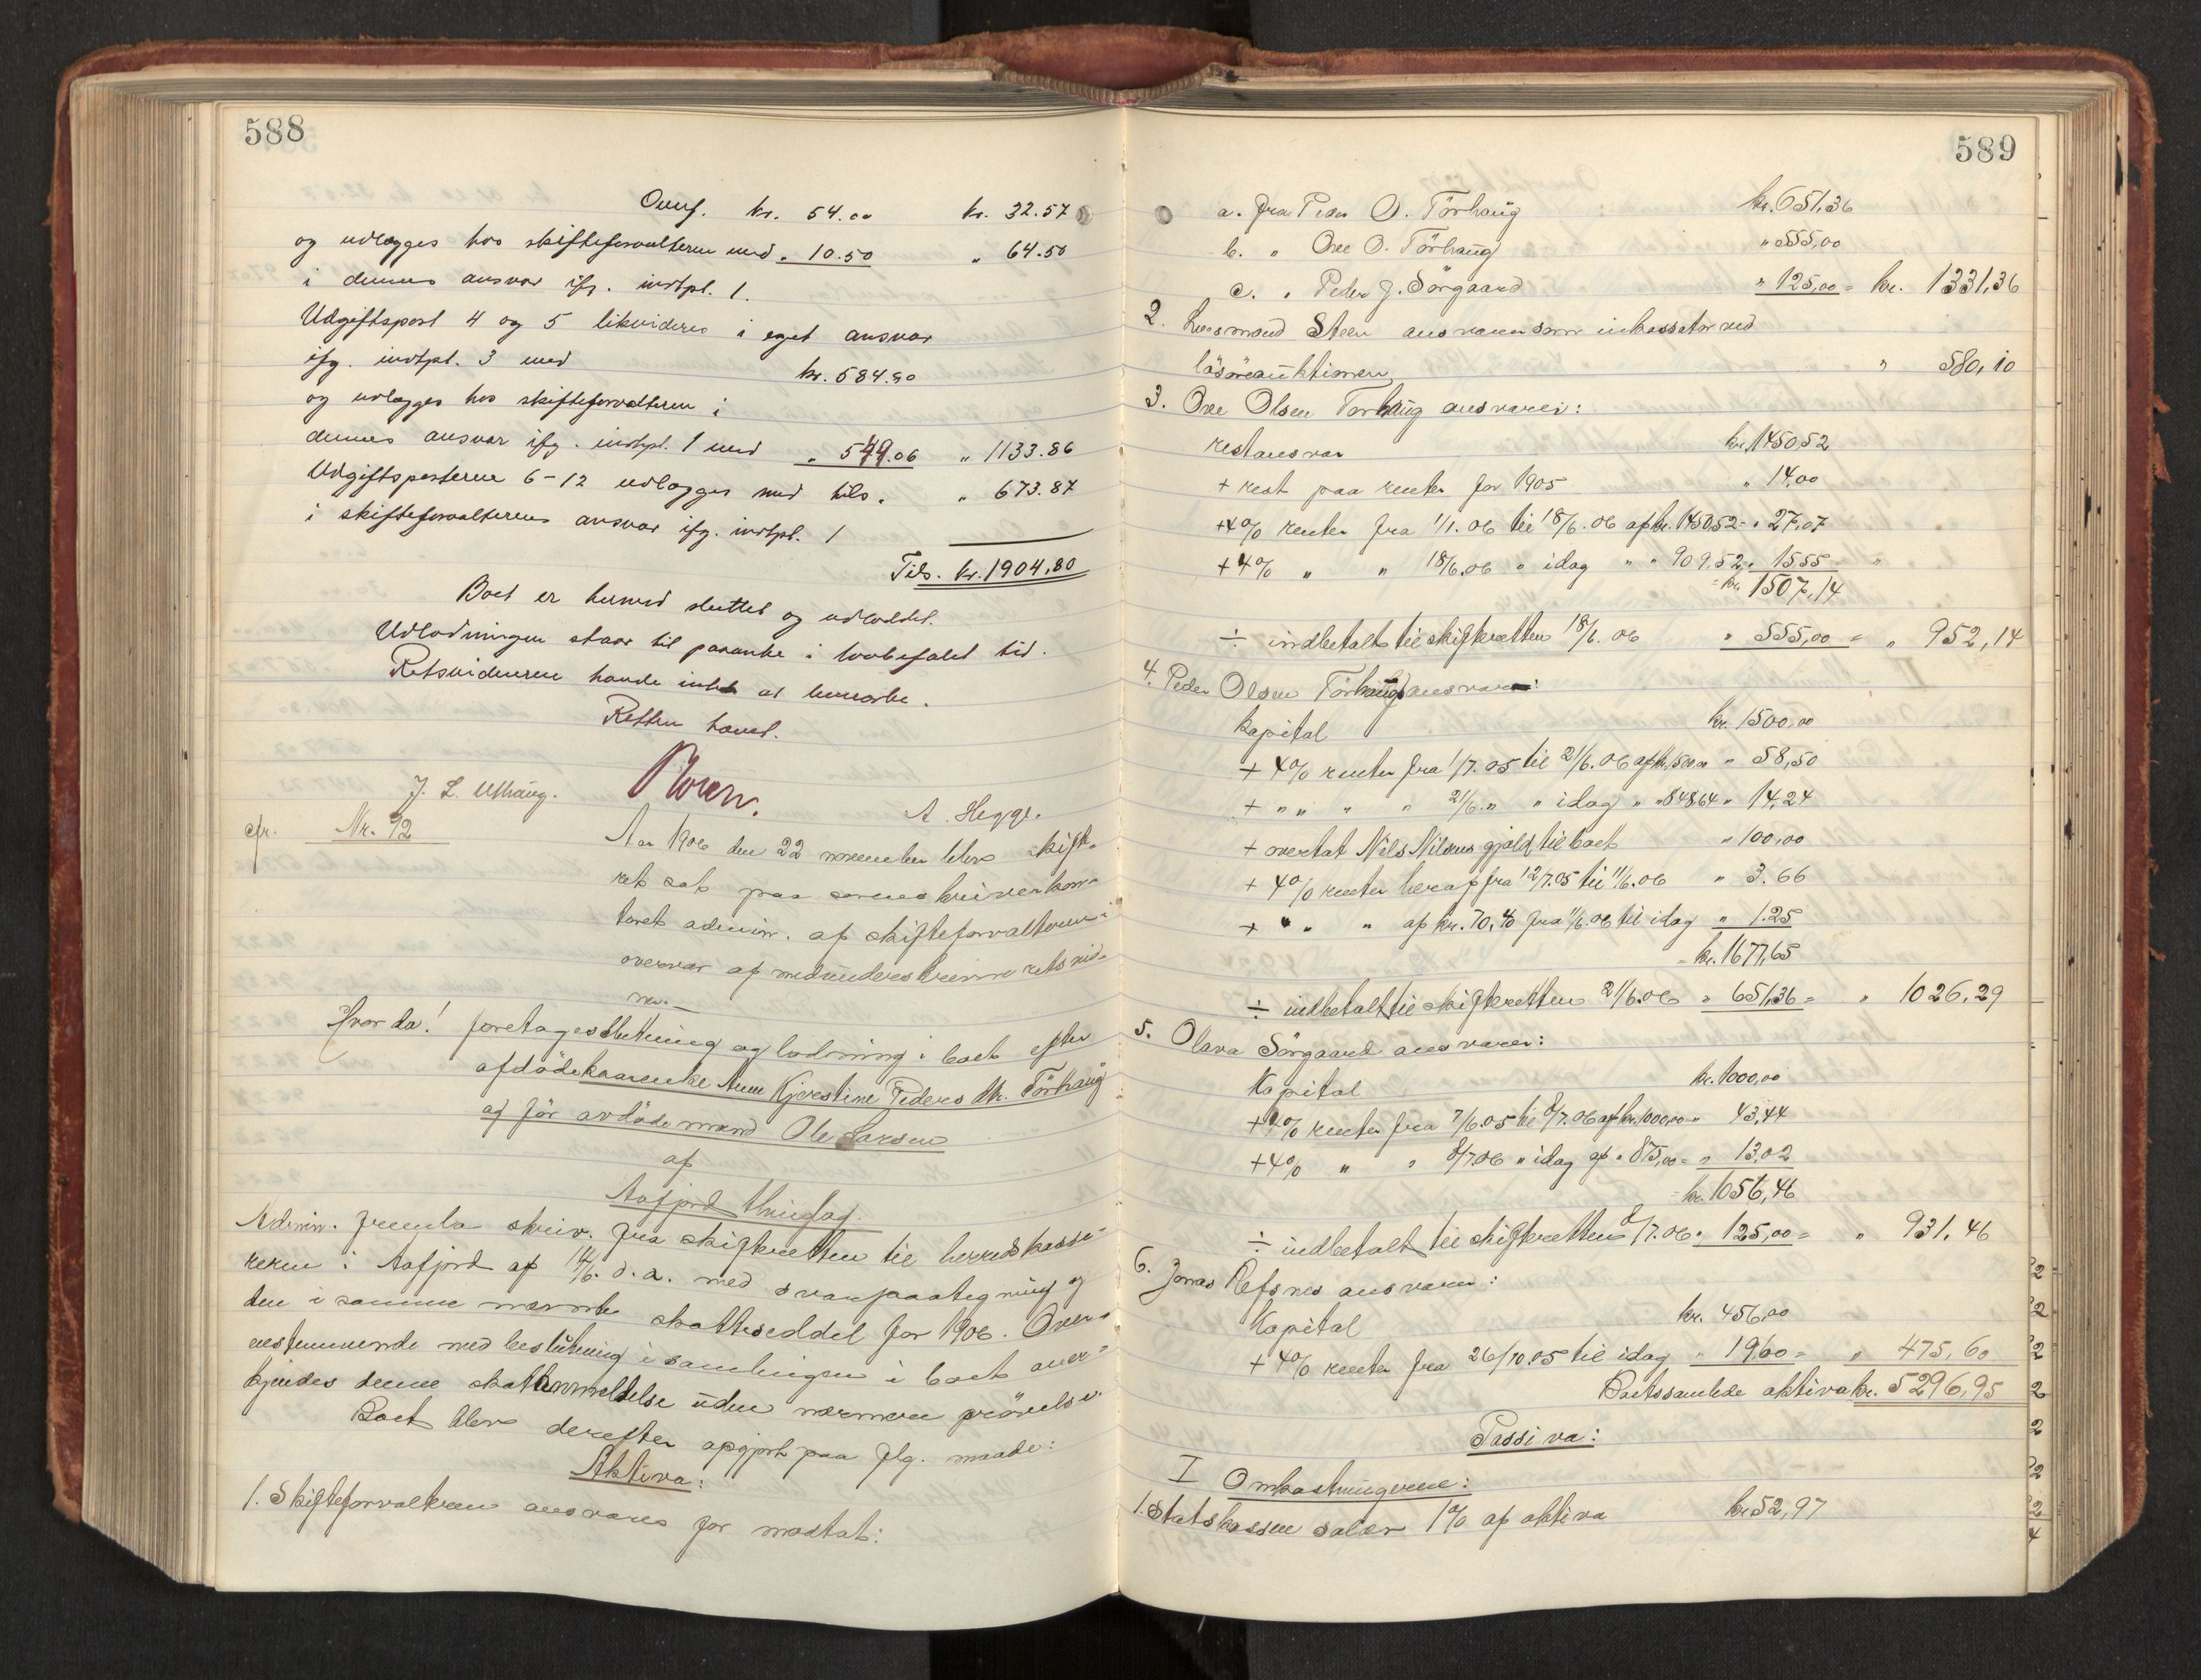 588
Overf. kr. 54.00 kr. 32.57
og udlægges hos skifteforvalteren med " 10.50 " 64.50
i dennes ansvar ifg. indtpt. 1.
Udgiftspost 4 og 5 likvideres i eget ansvar
ifg. indtpt. 3 med kr. 584.80
og udlægges hos skifteforvalteren i
dennes ansvar ifg. indtpt. 1 med " 549.06 " 1133.86
Udgiftsposterne 6-12 udlægges med tils. " 673.87
i skifteforvalterens ansvar ifg. indtpt. 1
Tils. kr. 1904.80
Boet er hermed sluttet og udloddet.
Udlodningen staar til paaanke i lovbefalet tid.
Retsvidnerne havde intet at bemærke.
Retten hævet.
J. L. Uthaug. A. Hegge.
cfr. Nr. 92
Aar 1906 den 22 november blev skifte-
ret sat paa sorenskriverkon-
toret admin. af skifteforvalteren i
overvær af medunderskrevne retsvid-
ner.
Hvorda! foretoges slutning og lodning i boet efter
afdøde kaarenke Anne Kjerstine Pedersdtr. Törhaug
og før avdøde mand Ole Larsen
af
Aafjord thinglag.
Admin. fremla skriv. fra skifteretten til herredskasse-
reren i Aafjord af 14/6. d. a. med svarpaategning og
den i samme nævnte skatteseddel for 1906. Over-
ensstemmende med beslutning i samlingen i boet aner-
kjendes denne skatteanmeldelse uden nærmere prövelse.
Boet blev derefter opgjort paa flg. maade:
Aktiva:
1. Skifteforvalteren ansvarer for modtat:
589
a. fra Peder O. Törhaug kr. 651,36
b. " Ove O. Törhaug " 555,00
c. " Peder J. Sörgaard " 125,00 = kr. 1331,36
2. Lensmand Steen ansvarer som inkassator ved
lösöreauktionen " 580,10
3. Ove Olsen Törhaug ansvarer:
restansvar kr. 1450,52
+ rest paa renter for 1905 " 14,00
+ 4% renter fra 1/1. 06 til 18/6. 06 af kr. 1450,52 = " 27,07
+ 4% " " 18/6. 06 " idag " " 909.52 = " 15.55
= kr. 1507,14
÷ indbetalt til skifteretten 18/6. 06 " 555,00 = " 952,14
4. Peder Olsen Törhaug ansvarer:
Kapital kr. 1500,00
+ 4% renter fra 1/7. 05 til 21/6. 06 af kr. 1500.00 " 58,50
+ " " " " 21/6. " " idag " " 848,64 " 14,24
+ overtat Nils Nilsens gjæld til boet " 100,00
+ 4% renter herap fra 12/7.05 til 11/6.06 " 3.66
+ " " " af kr. 70,40 fra 11/6.06 til idag " 1.25
= kr. 1677,65
÷ indbetalt til skifteretten 21/6.06 " 651,36 = " 1026,29
5. Olava Sörgaard ansvarer:
Kapital kr. 1000,00
+ 4% renter fra 7/6.05 til 8/7.06 af kr. 1000,00 = 43,44
+ 4% " " 8/7.06 " idag af " 875,00 = " 13,02
= kr. 1056,46
÷ indbetalt til skifteretten 8/7.06 " 125,00 = " 931,46
6. Jonas Refsnes ansvarer:
Kapital kr. 456,00
+ 4% renter fra 26/10.05 til idag " 19,60 = " 475,60
Boets samlede aktiva kr. 5296,95
Passiva:
I Omkostningerne:
1. Statskassen salær 1% af aktiva kr. 52,97